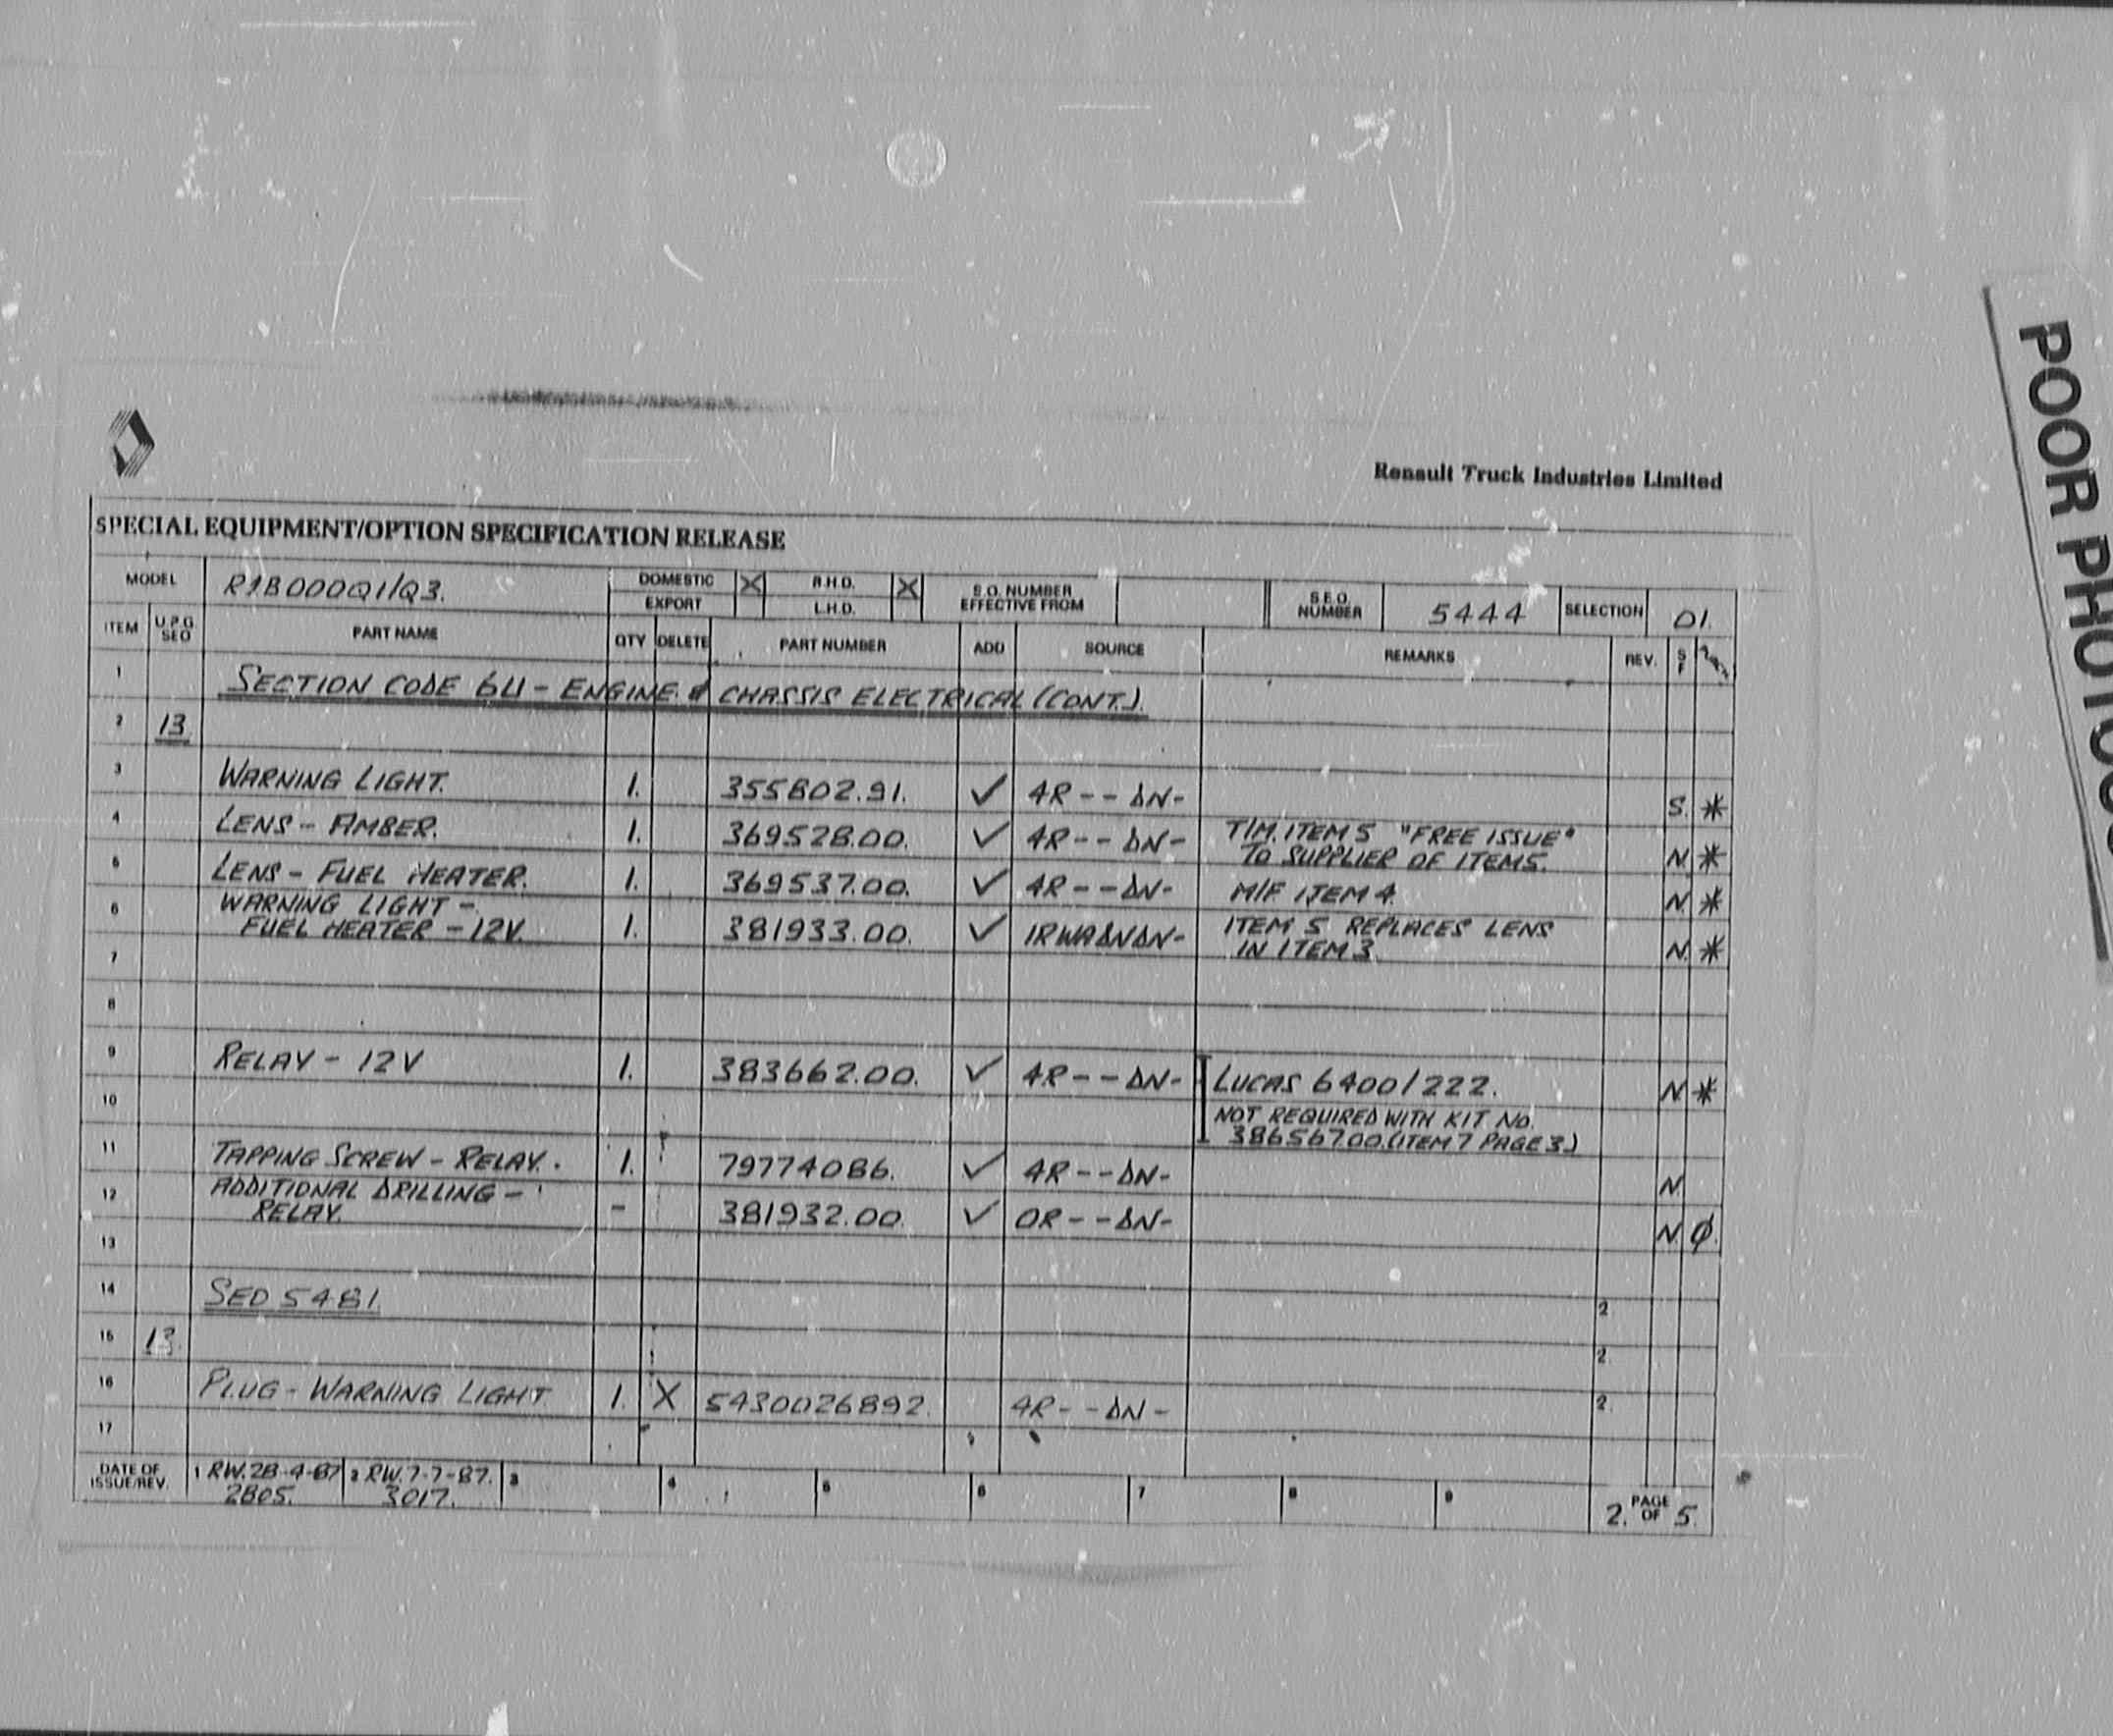 Renault Truck Industries Limited
SPECIAL EQUIPMENT/OPTION SPECIFICATION RELEASE
MODEL R1B000Q1/Q3. DOMESTIC X R.H.D. X S.O. NUMBER EFFECTIVE FROM S.E.O. NUMBER 5444 SELECTION 01.
EXPORT L.H.D.
ITEM U.P.G. SEO PART NAME QTY DELETE PART NUMBER ADD SOURCE REMARKS REV. S F
1 SECTION CODE 6U - ENGINE & CHASSIS ELECTRICAL (CONT.)
2 13
3 WARNING LIGHT. 1. 355802.91. ✓ 4R--ΔN- S. *
4 LENS - AMBER. 1. 369528.00. ✓ 4R--ΔN- T/M. ITEM 5 "FREE ISSUE" N. *
TO SUPPLIER OF ITEM 5.
5 LENS - FUEL HEATER. 1. 369537.00. ✓ 4R--ΔN- M/F ITEM 4. N. *
6 WARNING LIGHT -
FUEL HEATER - 12V. 1. 381933.00. ✓ 1RWAΔNΔN- ITEM 5 REPLACES LENS N. *
IN ITEM 3.
7
8
9 RELAY - 12V 1. 383662.00. ✓ 4R--ΔN- LUCAS 6400/222. N. *
10 NOT REQUIRED WITH KIT NO.
386567.00. (ITEM 7 PAGE 3)
11 TAPPING SCREW - RELAY. 1. 79774086. ✓ 4R--ΔN- N.
12 ADDITIONAL DRILLING -
RELAY. - 381932.00. ✓ OR--ΔN- N. φ.
13
14 SEO 5481. 2
15 13. 2.
16 PLUG - WARNING LIGHT. 1. X 5430026892. 4R--ΔN- 2.
17
DATE OF ISSUE/REV. 1 RW. 28-4-87 2 RW. 7-7-87. 3 4 5 6 7 8 9
2805. 3017. 2. PAGE OF 5.